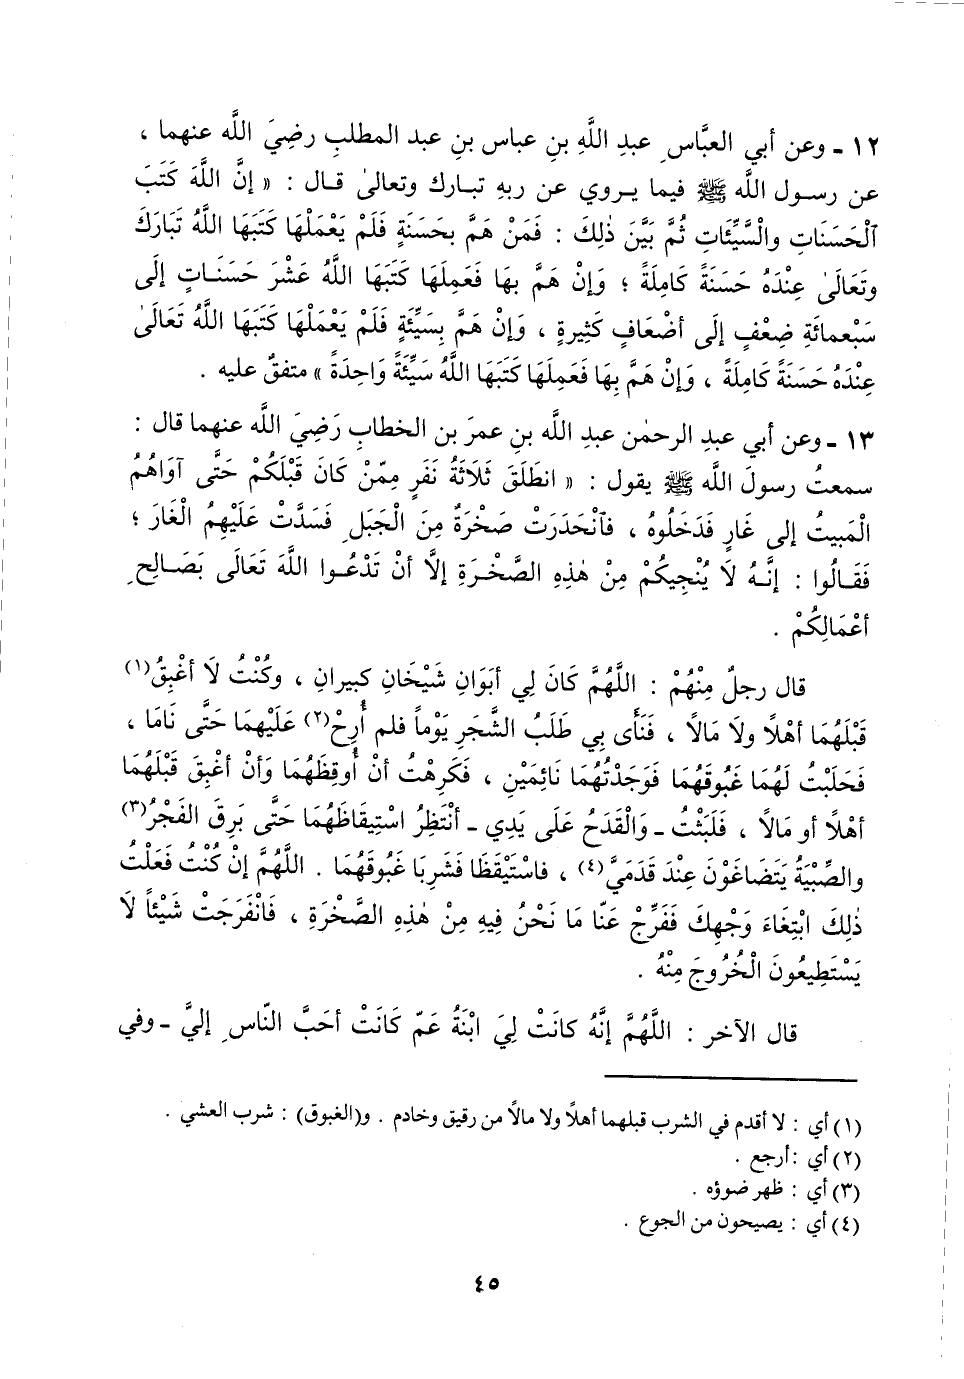 ١٢ - وعن أبي العبَّاسِ عبدِ اللَّهِ بنِ عباس بنِ عبد المطلبِ رضِيَ اللَّه عنهما ،
عن رسول اللَّه ﷺ فيما يروي عن ربهِ تبارك وتعالىٰ قال : « إنَّ اللَّهَ كَتَبَ
ٱلْحَسَنَاتِ والْسَّيِّئَاتِ ثُمَّ بَيَّنَ ذٰلِكَ : فَمَنْ هَمَّ بِحَسَنَةٍ فَلَمْ يَعْمَلْهَا كَتَبَهَا اللَّهُ تَبَارَكَ
وتَعَالَىٰ عِنْدَهُ حَسَنَةً كَامِلَةً ؛ وَإنْ هَمَّ بها فَعَمِلَهَا كَتَبَهَا اللَّهُ عَشْرَ حَسَنَـاتٍ إلَى
سَبْعمائَةِ ضِعْفٍ إلَى أضْعَافٍ كَثِيرةٍ ، وَإنْ هَمَّ بِسَيِّئَةٍ فَلَمْ يَعْمَلْهَا كَتَبَهَا اللَّهُ تَعَالَىٰ
عِنْدَهُ حَسَنَةً كَامِلَةً ، وَإنْ هَمَّ بِهَا فَعَمِلَهَا كَتَبَهَا اللَّهُ سَيِّئَةً وَاحِدَةً » متفقٌ عليه .
١٣ - وعن أبي عبدِ الرحمٰن عبدِ اللَّه بنِ عمرَ بن الخطابِ رَضِيَ اللَّه عنهما قال :
سمعتُ رسولَ اللَّه ﷺ يقول : « انطَلَقَ ثَلَاثَةُ نَفَرٍ مِمَّنْ كَانَ قَبْلَكُمْ حَتَّى آوَاهُمُ
الْمَبيتُ إلى غَارٍ فَدَخَلُوهُ ، فَٱنْحَدَرَتْ صَخْرَةٌ مِنَ الْجَبَلِ فَسَدَّتْ عَلَيْهِمُ الْغَارَ ؛
فَقَـالُوا : إنَّـهُ لَا يُنْجِيكُمْ مِنْ هٰذِهِ الصَّخْـرَةِ إلَّا أنْ تَدْعُـوا اللَّهَ تَعَالَى بَصَـالِحِ
أعْمَالِكُمْ .
قال رجلٌ مِنْهُمْ : اللَّهُمَّ كَانَ لِي أبَوَانِ شَيْخَانِ كبيرانِ ، وكُنْتُ لَا أغْبِقُ(١)
قَبْلَهُمَا أهْلًا ولَا مَالًا ، فَنَأَى بِي طَلَبُ الشَّجَرِ يَوْماً فلم أُرِحْ(٢) عَلَيْهِمَا حَتَّى نَامَا ،
فَحَلَبْتُ لَهُمَا غَبُوقَهُمَا فَوَجَدْتُهُمَا نَائِمَيْنِ ، فَكَرِهْتُ أنْ أُوقِظَهُمَا وَأنْ أغْبِقَ قَبْلَهُمَا
أهْلًا أو مَالًا ، فَلَبَثْتُ - وَالْقَدَحُ عَلَى يَدِي - أنْتَظِرُ اسْتِيقَاظَهُمَا حَتَّى بَرِقَ الفَجْرُ(٣)
والصِّبْيَةُ يَتَضَاغَوْنَ عِنْدَ قَدَمَيَّ(٤) ، فاسْتَيْقَظَا فَشَرِبَا غَبُوقَهُمَا . اللَّهُمَّ إنْ كُنْتُ فَعَلْتُ
ذٰلِكَ ابْتِغَاءَ وَجْهِكَ فَفَرِّجْ عَنَّا مَا نَحْنُ فِيهِ مِنْ هٰذِهِ الصَّخْرَةِ ، فَانْفَرَجَتْ شَيْئاً لَا
يَسْتَطِيعُونَ الْخُرُوجَ مِنْهُ .
قال الآخر : اللَّهُمَّ إنَّهُ كانَتْ لِيَ ابْنَةُ عَمّ كَانَتْ أحَبَّ النّاسِ إليَّ - وفي
(١) أي : لا أقدم في الشرب قبلهما أهلًا ولا مالًا من رقيق وخادم . و(الغبوق) : شرب العشي .
(٢) أي : أرجع .
(٣) أي : ظهر ضوؤه .
(٤) أي : يصيحون من الجوع .
٤٥